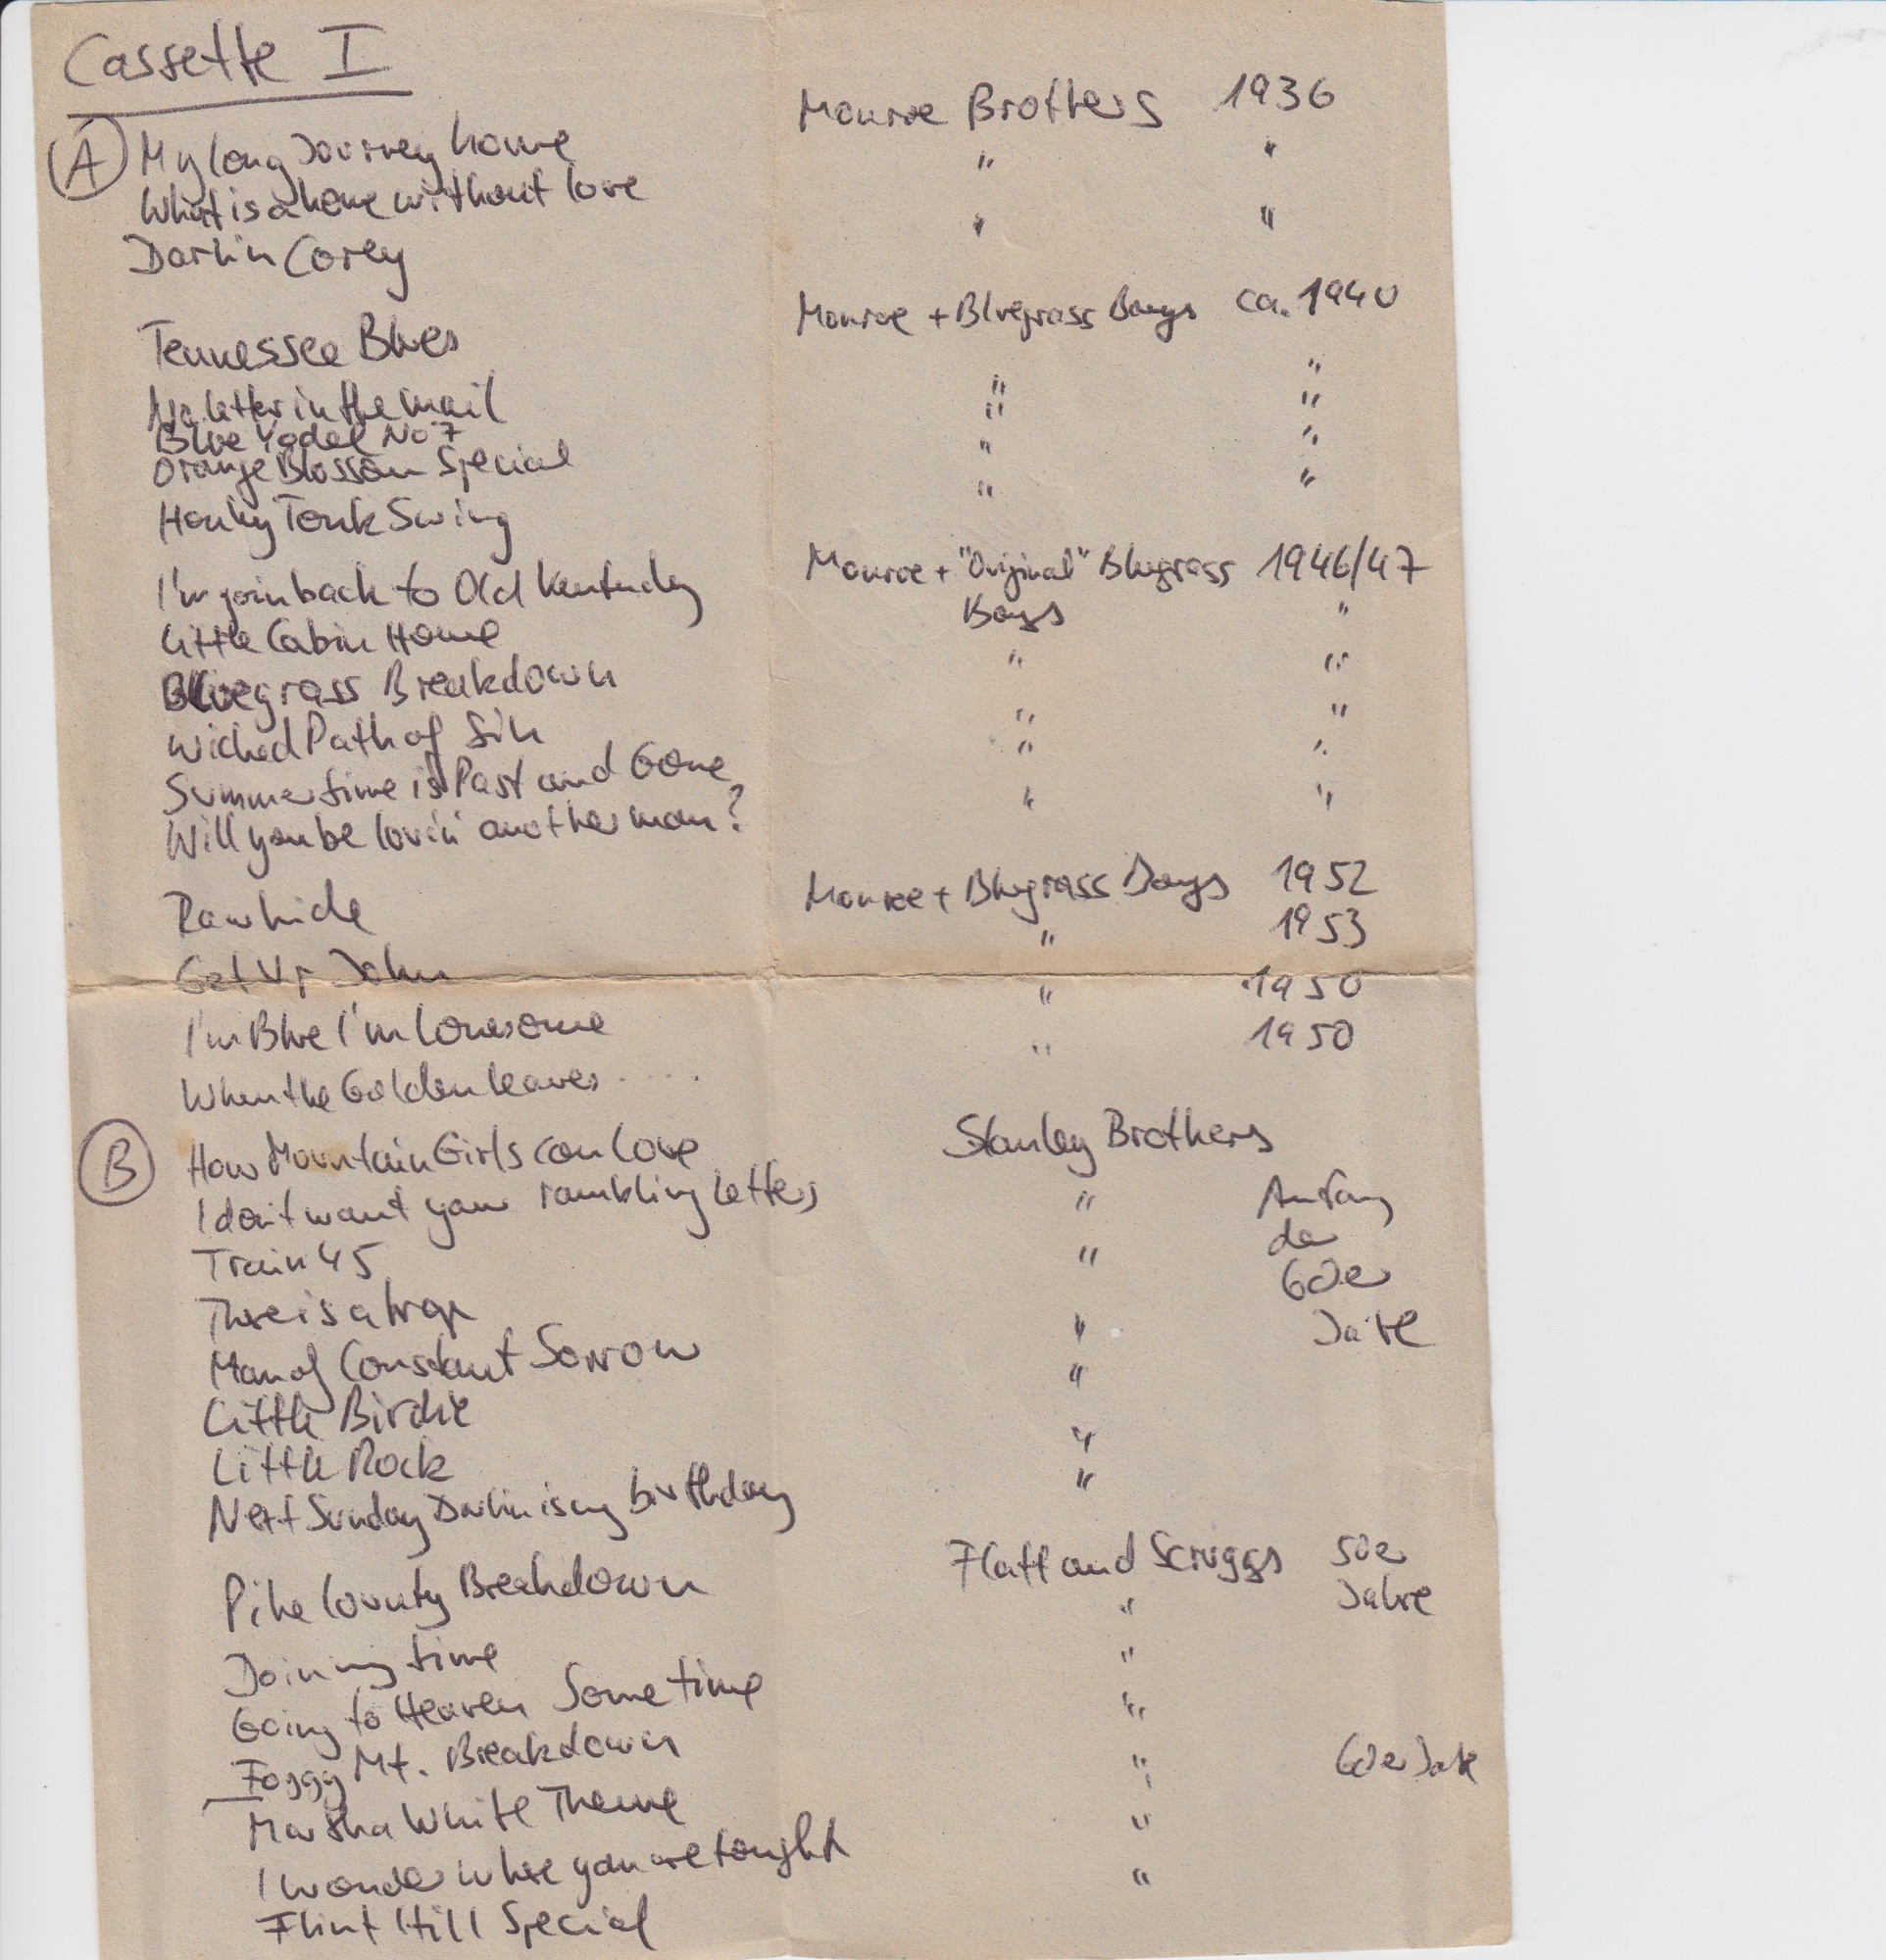 Cassette I
Monroe Brothers 1936
A My long Journey home " "
What is a home without love " "
Darlin Corey
Monroe + Bluegrass Boys ca. 1940
Tennessee Blues "
No letter in the mail " "
Blue Yodel No 7 " "
Orange Blossom Special " "
Honky Tonk Swing
Monroe + "Original" Bluegrass 1946/47
I'm goin back to Old Kentucky Boys "
Little Cabin Home " "
Bluegrass Breakdown " "
Wicked Path of Sin " "
Summertime is Past and Gone " "
Will you be lovin' another man?
Monroe + Bluegrass Boys 1952
Rawhide " 1953
Get Up John " 1950
I'm Blue I'm lonesome " 1950
When the Golden leaves .....
Stanley Brothers
B How Mountain Girls can love
I don't want your rambling letters " Anfang
Train 45 " der
60er
There is a trap " Jahre
Man of Constant Sorrow "
Little Birdie "
Little Rock "
Next Sunday Darlin is my birthday
Flatt and Scruggs 50er
Pike County Breakdown " Jahre
Doin my time "
Going to Heaven Sometime "
Foggy Mt. Breakdown " 60er Jahre
Martha White Theme "
I wonder where you are tonight "
Flint Hill Special